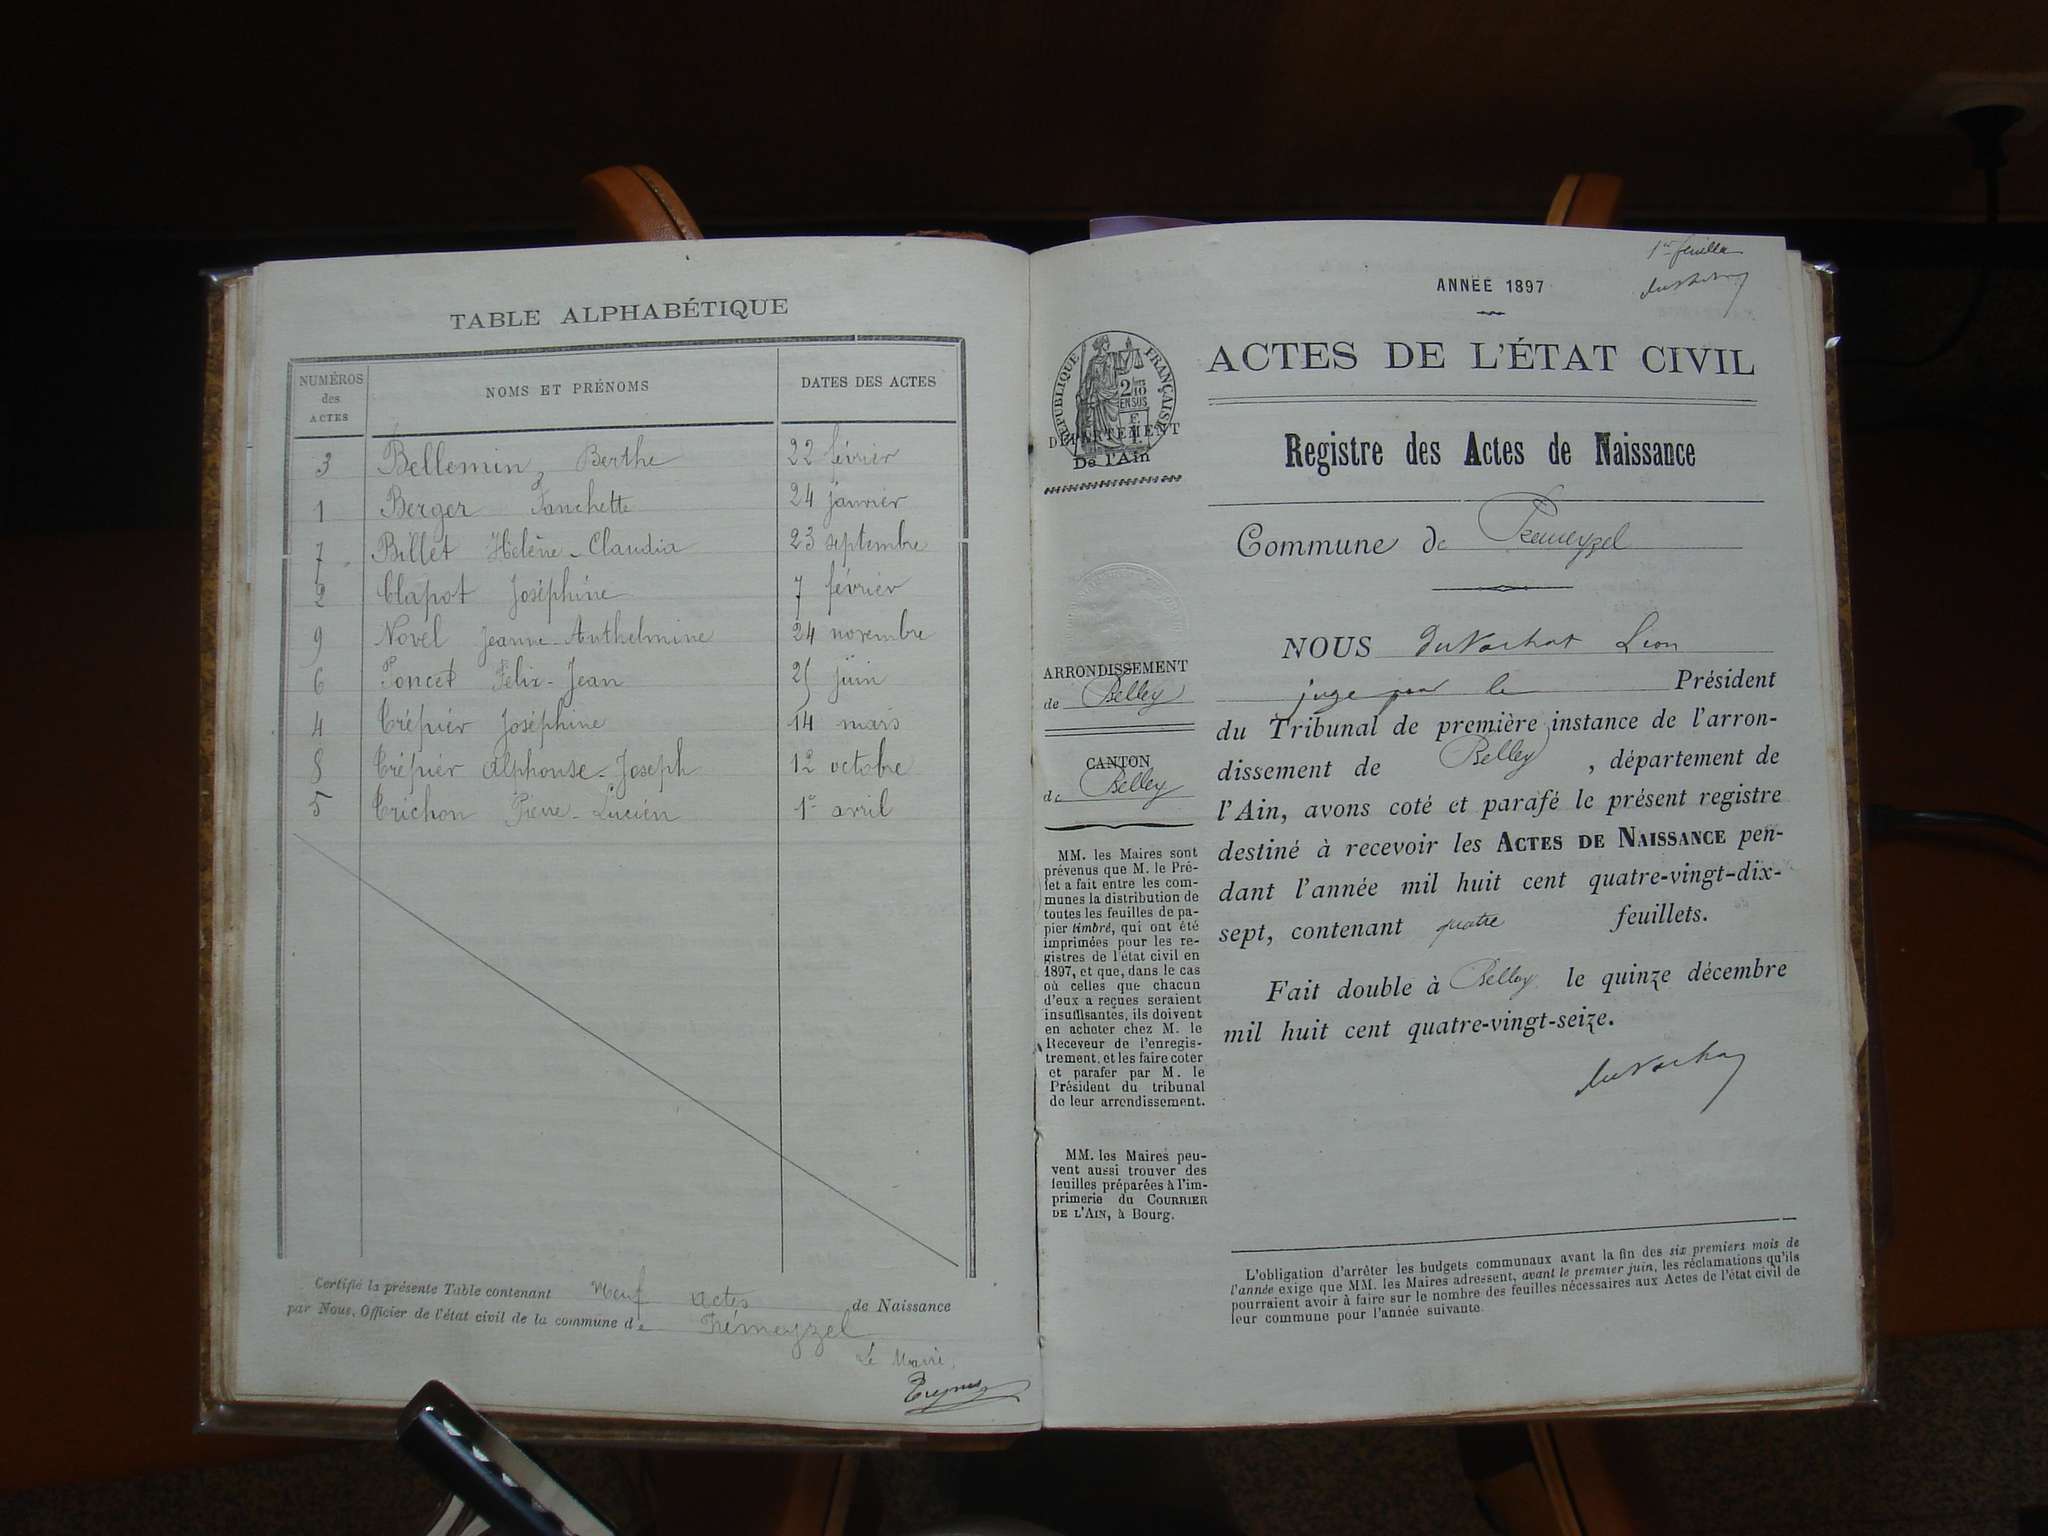 TABLE ALPHABÉTIQUE
NUMÉROS des ACTES NOMS ET PRÉNOMS DATES DES ACTES
3 Bellemin Berthe 22 février
1 Berger Fanchette 24 janvier
7 Billet Hélène-Claudia 23 septembre
2 Clapot Joséphine 7 février
9 Novel Jeanne-Anthelmine 24 novembre
6 Poncet Félix-Jean 25 juin
4 Crépier Joséphine 14 mars
8 Crépier Alphonse-Joseph 12 octobre
5 Crichon Pierre-Lucien 1er avril
Certifié la présente Table contenant Neuf actes de Naissance
par Nous, Officier de l'état civil de la commune de Prémeyzel
Le Maire,
1er feuillet
ANNÉE 1897
ACTES DE L'ÉTAT CIVIL
RÉPUBLIQUE FRANÇAISE
2/10 EN SUS
DÉPARTEMENT
De l'Ain
Registre des Actes de Naissance
Commune de Premeyzel
ARRONDISSEMENT
de Belley
CANTON
de Belley
MM. les Maires sont
prévenus que M. le Pré-
fet a fait entre les com-
munes la distribution de
toutes les feuilles de pa-
pier timbré, qui ont été
imprimées pour les re-
gistres de l'état civil en
1897, et que, dans le cas
où celles que chacun
d'eux a reçues seraient
insuffisantes, ils doivent
en acheter chez M. le
Receveur de l'enregis-
trement, et les faire coter
et parafer par M. le
Président du tribunal
de leur arrondissement.
MM. les Maires peu-
vent aussi trouver des
feuilles préparées à l'im-
primerie du COURRIER
DE L'AIN, à Bourg.
NOUS duVachat Léon
juge pour le Président
du Tribunal de première instance de l'arron-
dissement de Belley, département de
l'Ain, avons coté et parafé le présent registre
destiné à recevoir les ACTES DE NAISSANCE pen-
dant l'année mil huit cent quatre-vingt-dix-
sept, contenant quatre feuillets.
Fait double à Belley le quinze décembre
mil huit cent quatre-vingt-seize.
duVachat
L'obligation d'arrêter les budgets communaux avant la fin des six premiers mois de
l'année exige que MM. les Maires adressent, avant le premier juin, les réclamations qu'ils
pourraient avoir à faire sur le nombre des feuilles nécessaires aux Actes de l'état civil de
leur commune pour l'année suivante.